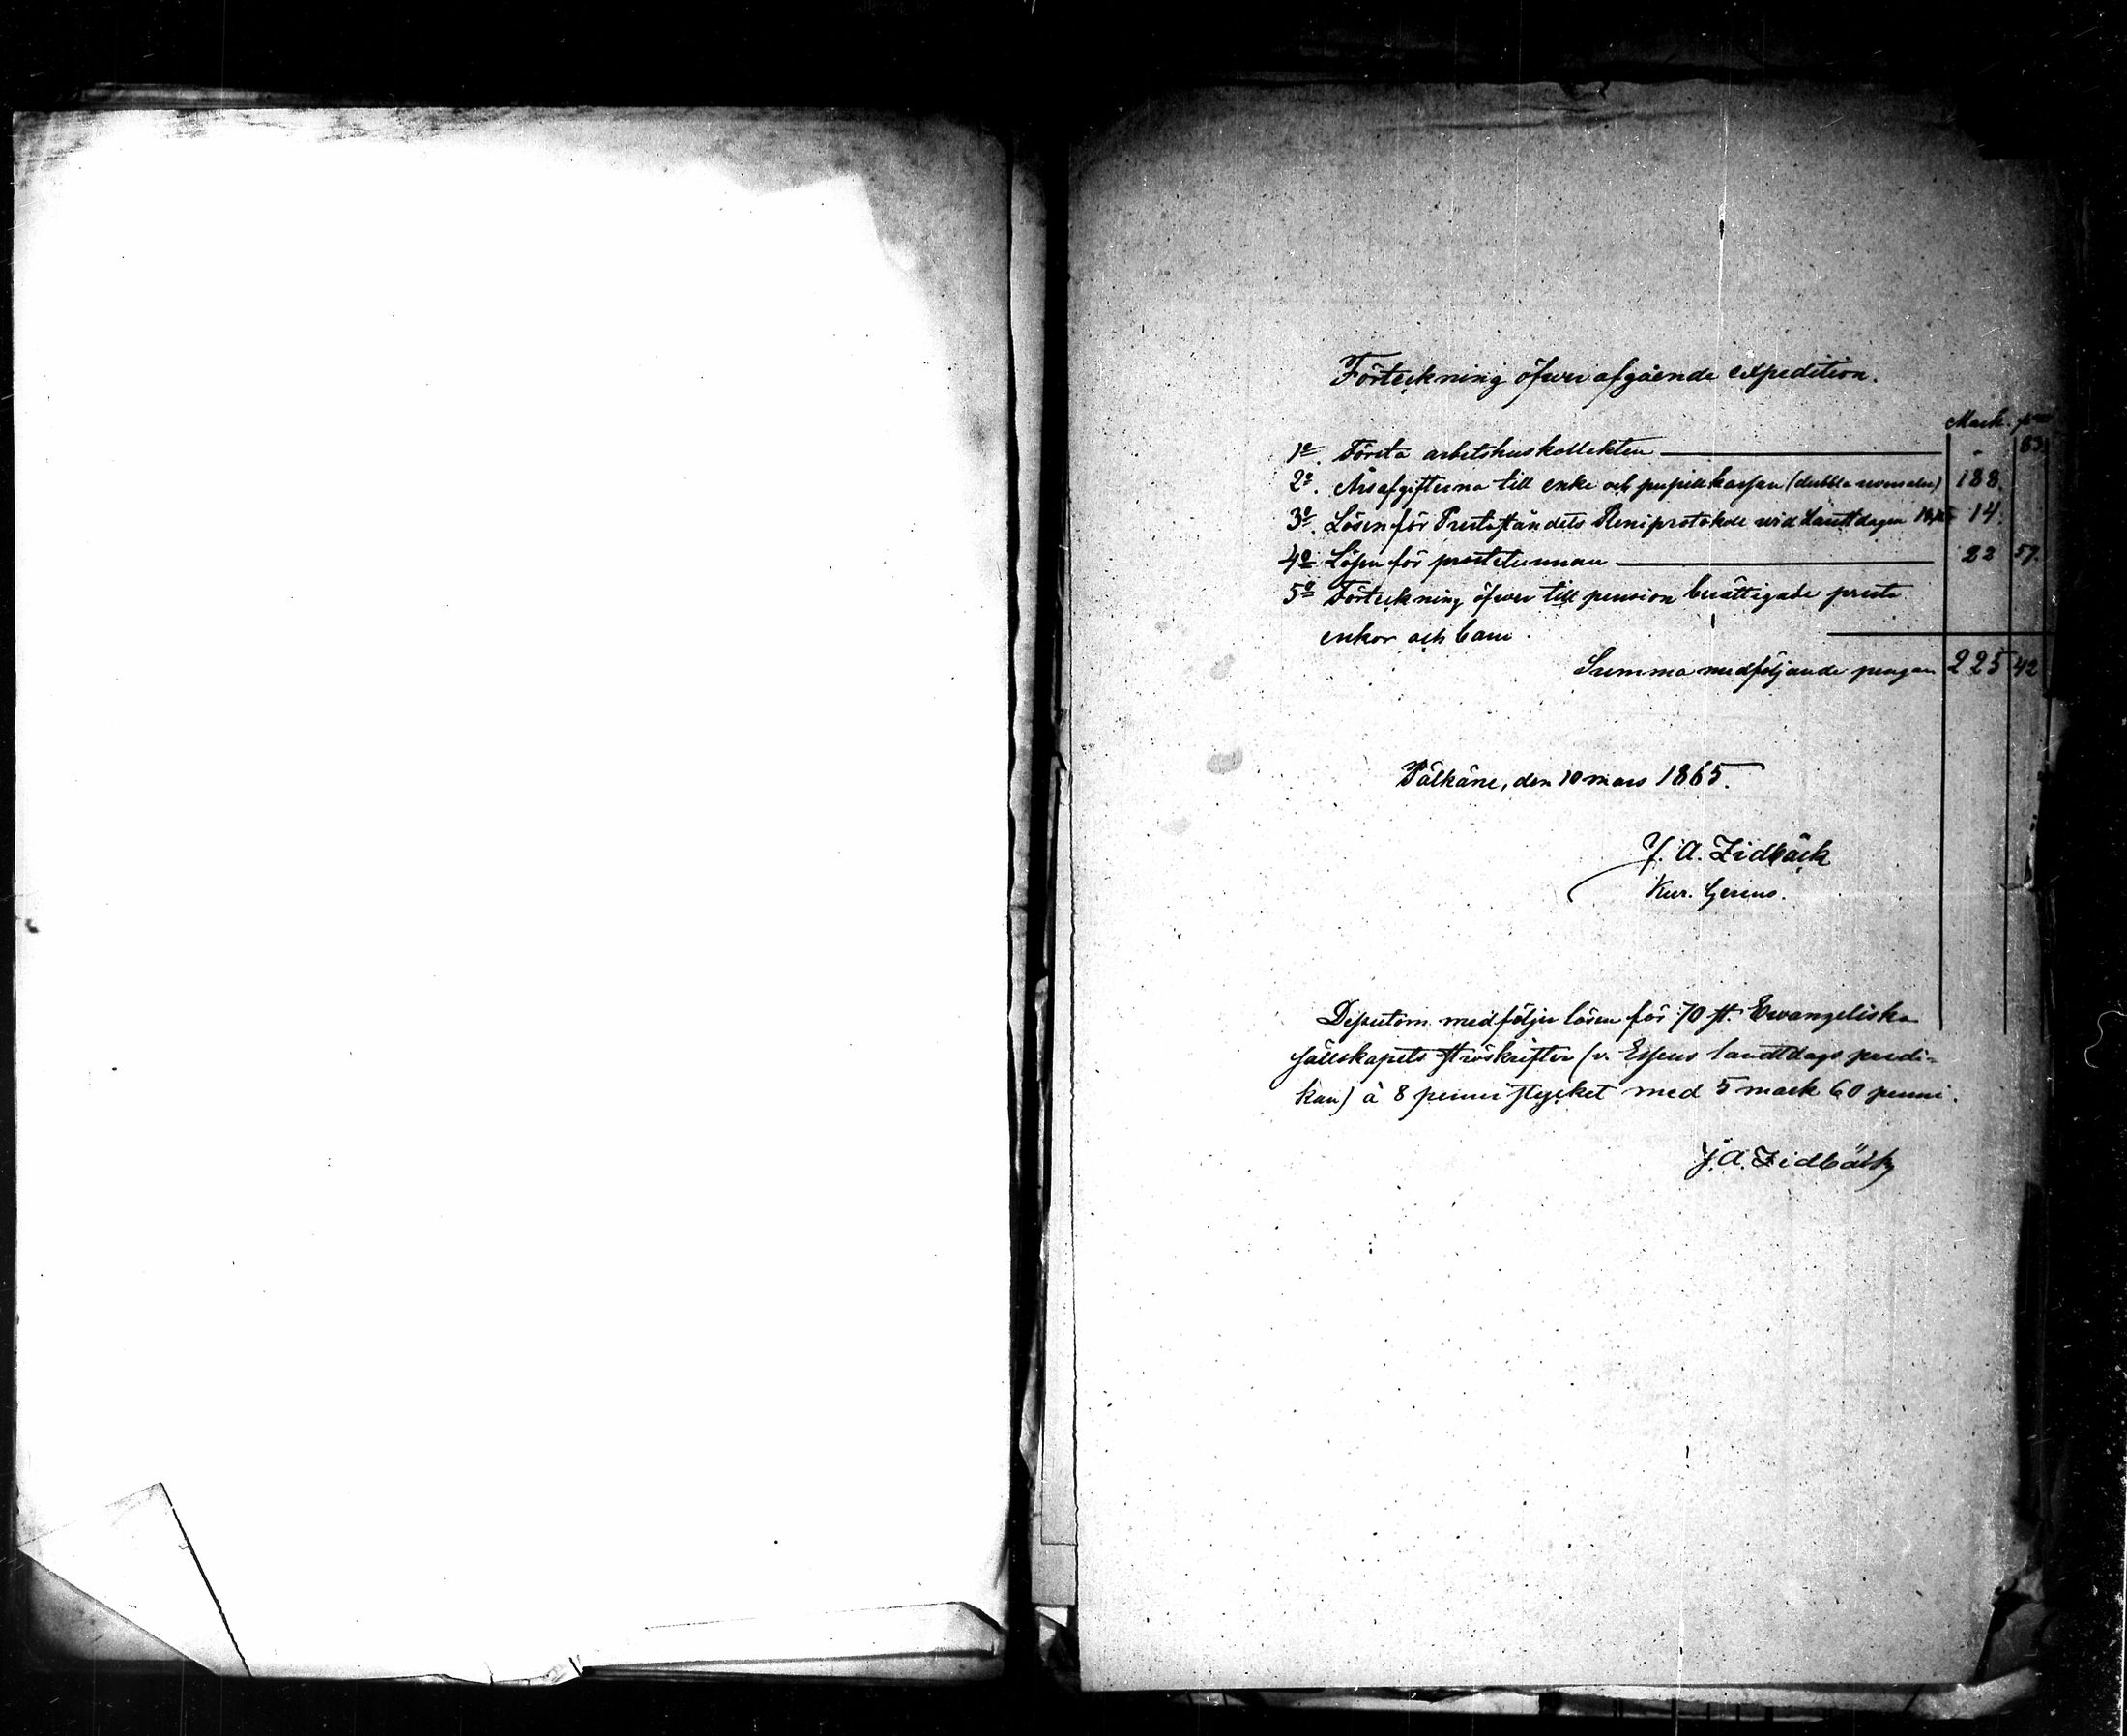 Förteckning öfver afgående expedition.
Mark. p:ni
1o. Första arbetshuskollekten - 83.
2o. Årsafgifterna till enke och pupillkassan (dubbla reversaler) 188.
3o. Lösen för Presteståndets Reniprotokoll wid Landtdagen 14.
4o. Lösen för prosttunnan 22 57.
5o Förteckning öfwer till pension berättigade preste
enkor och barn.
Summa medföljande pengar 225 42
Pälkäne, den 10 mars 1865.
J. A. Lidbäck
Kur. Gerens.
Dessutom medföljer lösen för 70 st. Ewangeliska
sällskapets ströskrifter (v. Essens landtdags predi-
kan) à 8 penni stycket med 5 mark 60 penni.
J. A. Lidbäck